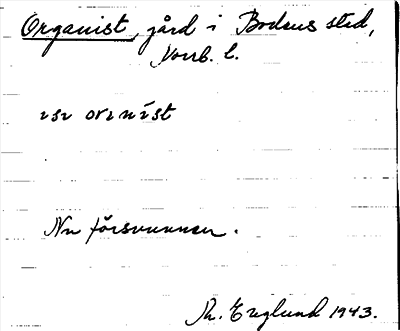 Organist, gård i Bodens stad,
Norrb. l.
orɩnist
Nu försvunnen.
Th. Englund 1943.